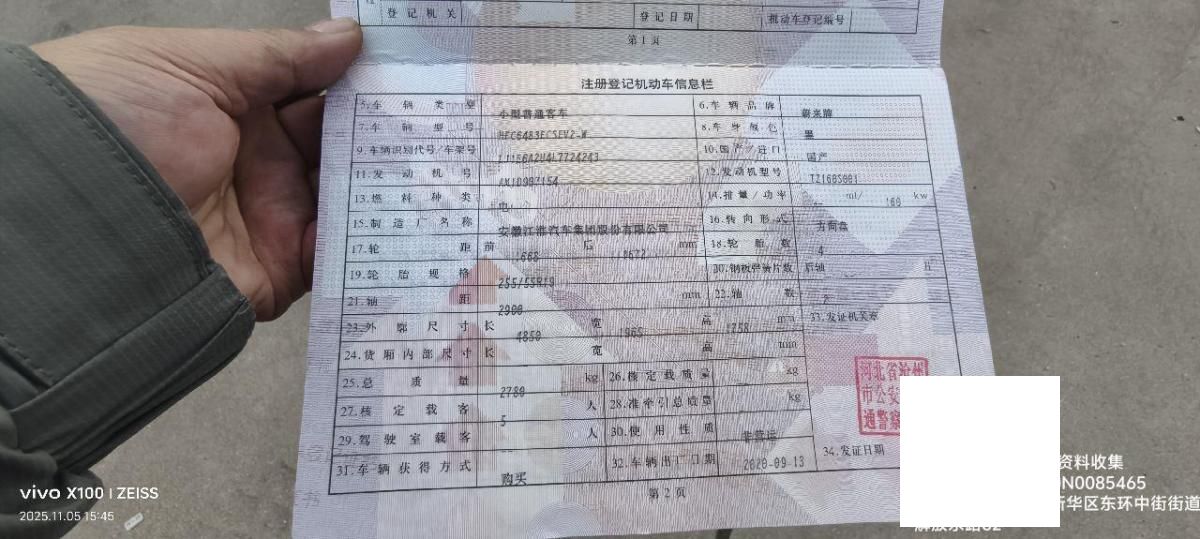 登记机关 登记日期 机动车登记编号
第1页
注册登记机动车信息栏
5.车辆类型 小型普通客车 6.车辆品牌 蔚来牌
7.车辆型号 HFC6483ECSEV2-W 8.车身颜色 黑
9.车辆识别代号/车架号 10.国产/进口 国产
11.发动机号 12.发动机型号 TZ160S001
13.燃料种类 电 14.排量/功率 ml/ 160 kw
15.制造厂名称 安徽江淮汽车集团股份有限公司 16.转向形式 方向盘
17.轮距 前 1668 后 1672 mm 18.轮胎数 4
19.轮胎规格 255/55R19 20.钢板弹簧片数 后轴 片
21.轴距 2900 mm 22.轴数 2
23.外廓尺寸 长 4850 宽 1965 高 1758 mm 33.发证机关章
24.货厢内部尺寸 长 宽 高 mm
河北省沧州
市公安
通警察
25.总质量 2780 kg 26.核定载质量 kg
27.核定载客 5 人 28.准牵引总质量 kg
29.驾驶室载客 人 30.使用性质 非营运
31.车辆获得方式 购买 32.车辆出厂日期 2020-09-13 34.发证日期
第2页
vivo X100 | ZEISS
2025.11.05 15:45
资料收集
N0085465
新华区东环中街街道